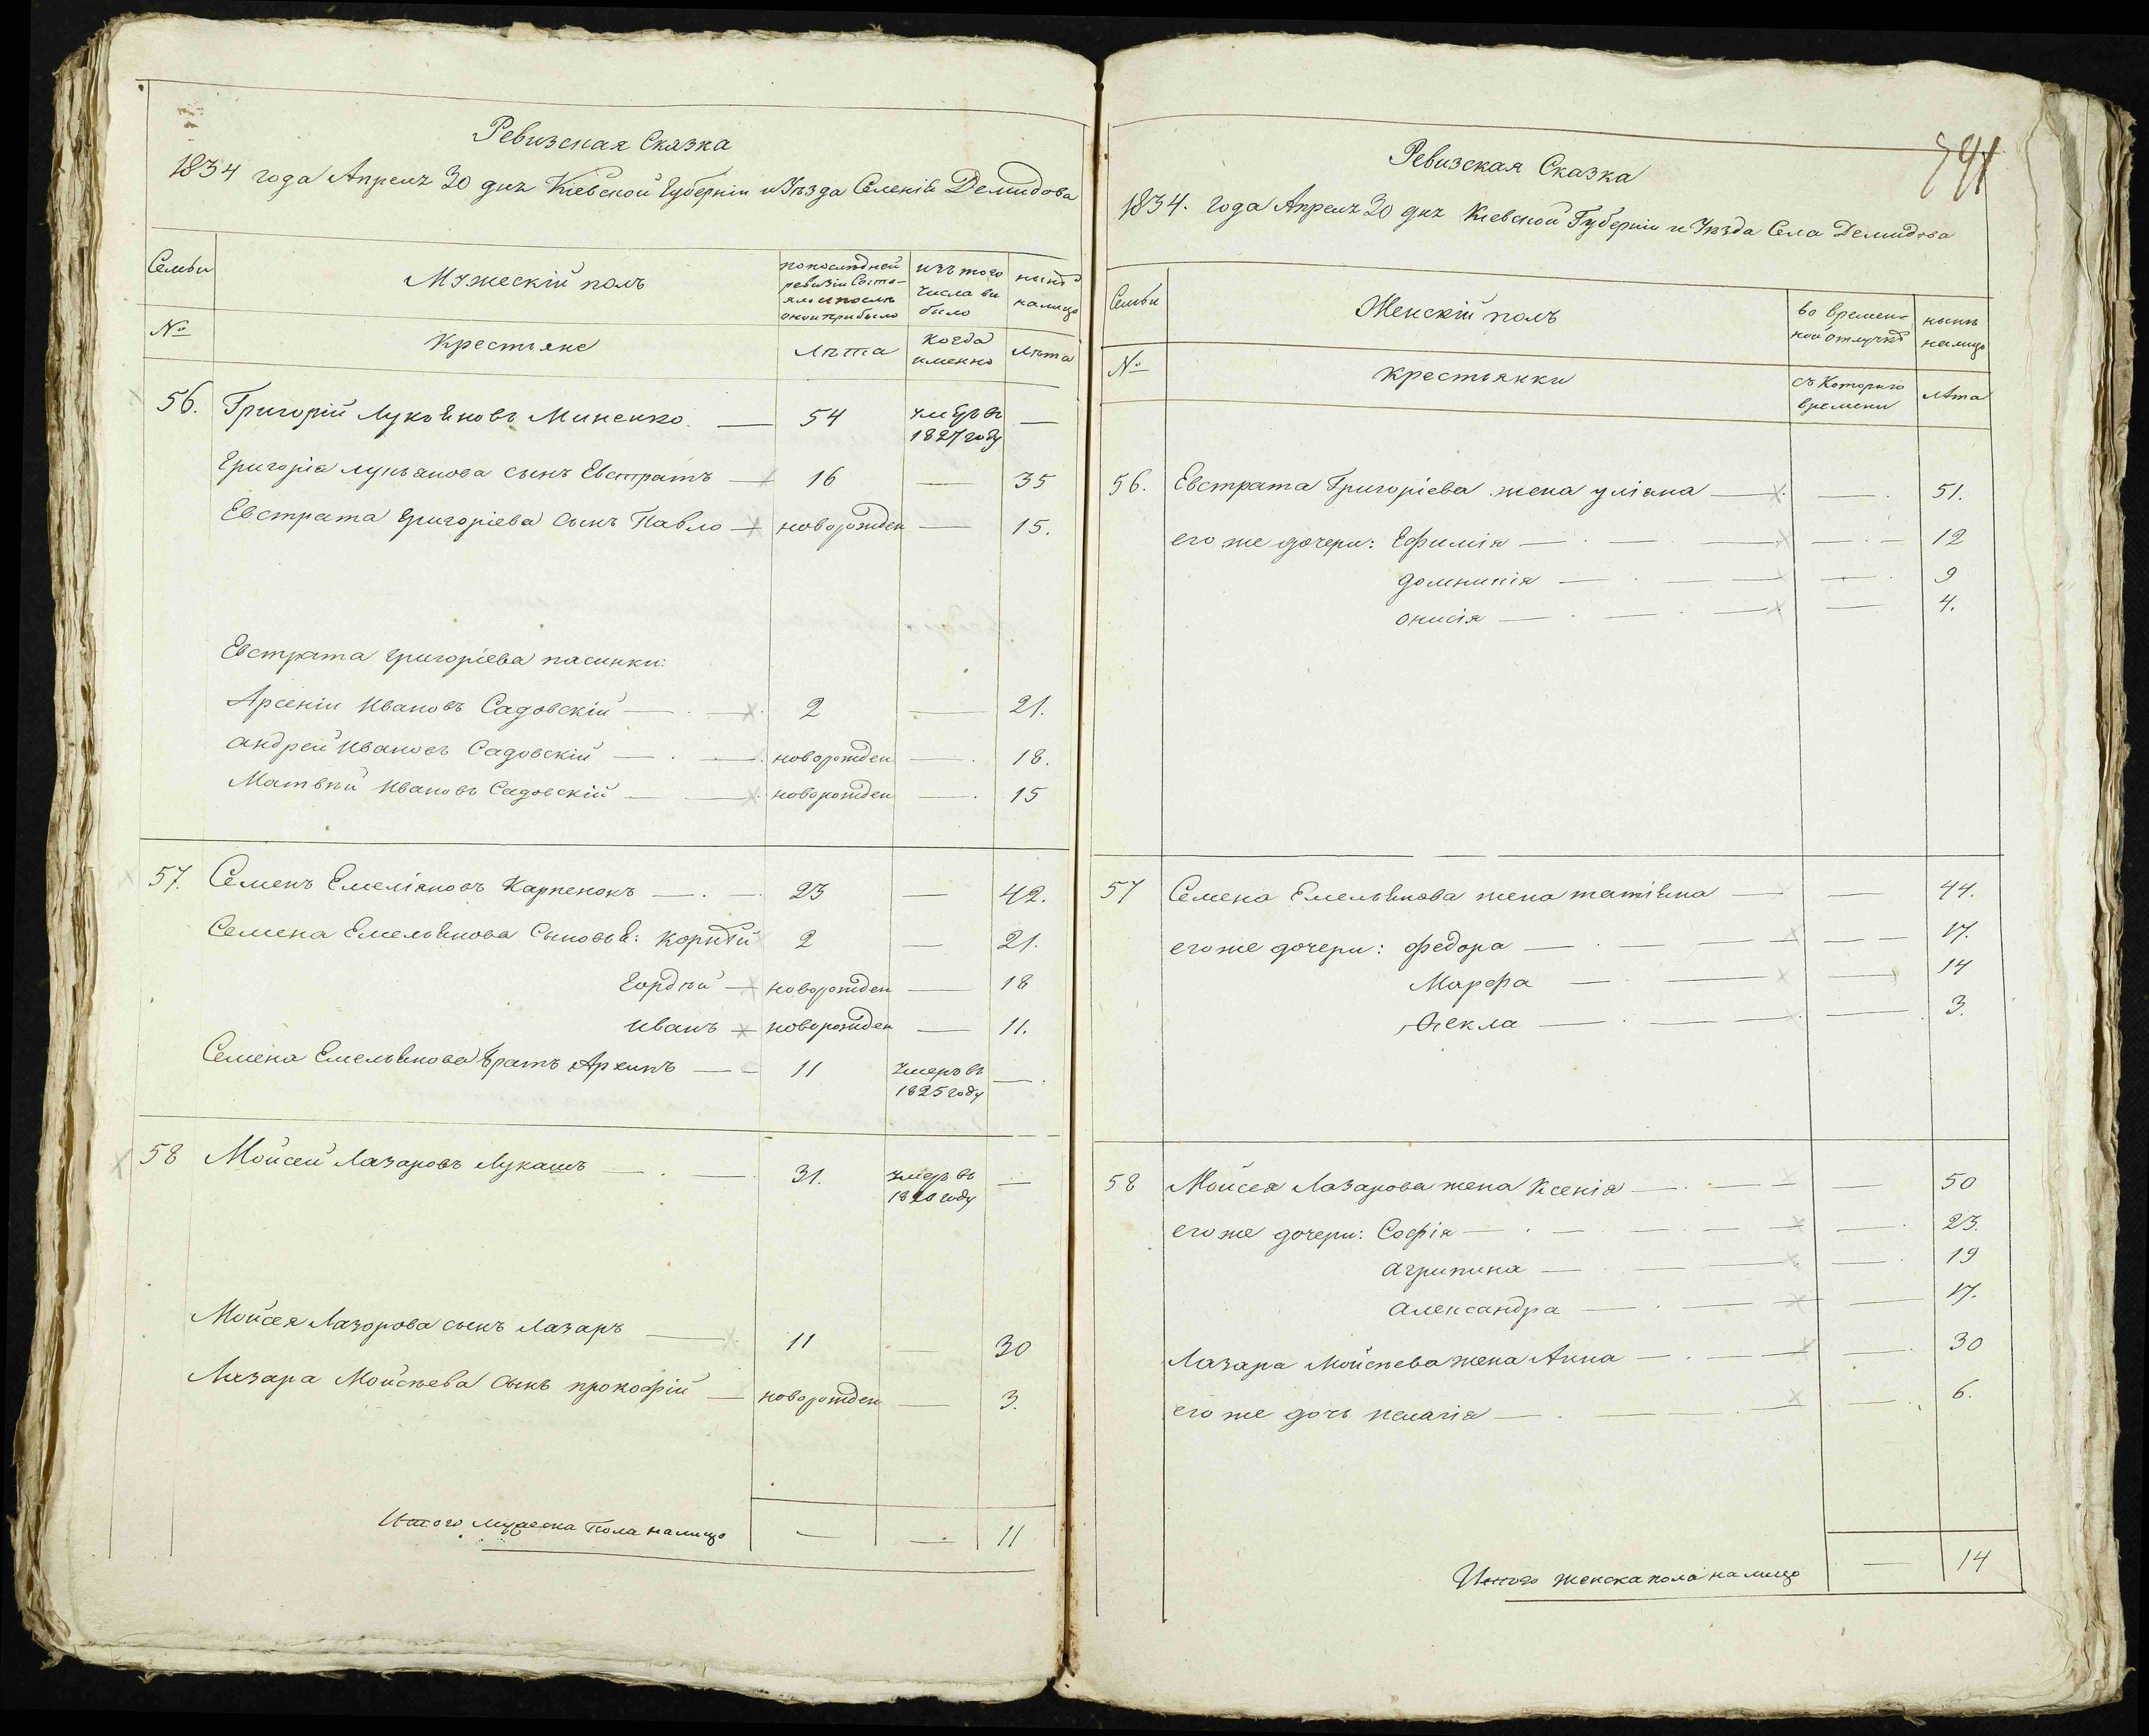 Ревизская Сказка
1834 года Апреля 30 дня Кіевской Губерніи и Уѣзда Селенія Демидова
Семьи
Мужескій полъ
по послѣдней ревизіи состояло и послѣ оной прибыло
изъ того числа выбыло
нынѣ налицо
№
Крестьяне
Лѣта
когда именно
Лѣта
56. Григорій Лукьяновъ Миненко — 54 умеръ въ 1827 году —
Григорія Лукьянова сынъ Евстратъ — 16 — 35
Евстрата Григоріева сынъ Павло — новорожден — 15.
Евстрата Григоріева пасинки:
Арсеній Ивановъ Садовскій — 2 — 21.
Андрей Ивановъ Садовскій — новорожден — 18.
Матвѣй Ивановъ Садовскій — новорожден — 15
57. Семенъ Емеліяновъ Карпенокъ — 23 — 42.
Семена Емельянова Сыновья: Корнѣй 2 — 21.
Гордѣй — новорожден — 18
Иванъ — новорожден — 11.
Семена Емельянова братъ Архипъ — 11 Умеръ въ 1825 году —
58 Мойсей Лазаровъ Лукашъ — 31. Умеръ въ году —
Мойсея Лазорова сынъ Лазаръ — 11 — 30
Лазара Мойсѣева сынъ прокофій — новорожден — 3.
Итого мужеска пола налицо — — 11
741
Ревизская Сказка
1834. года Апреля 30 дня Кіевской Губерніи и Уѣзда Села Демидова
Семьи
Женскій полъ
во временной отлучкѣ
нынѣ налицо
№
крестьянки
съ Котораго времени
Лѣта
56. Евстрата Григоріева жена уліяна — — 51.
его же дочери: Ефимія — — 12
домникія — — 9
онисія — — 4.
57 Семена Емельянова жена татіяна — — 44.
его же дочери: федора — — 17.
Марфа — — 14
Фекла — — 3.
58 Мойсея Лазарова жена Ксенія — — 50
его же дочери: Софія — — 23.
агрипина — — 19
александра — — 17.
Лазара Мойсѣева жена Анна — — 30
его же дочь пелагія — — 6.
Итого женска пола налицо — 14